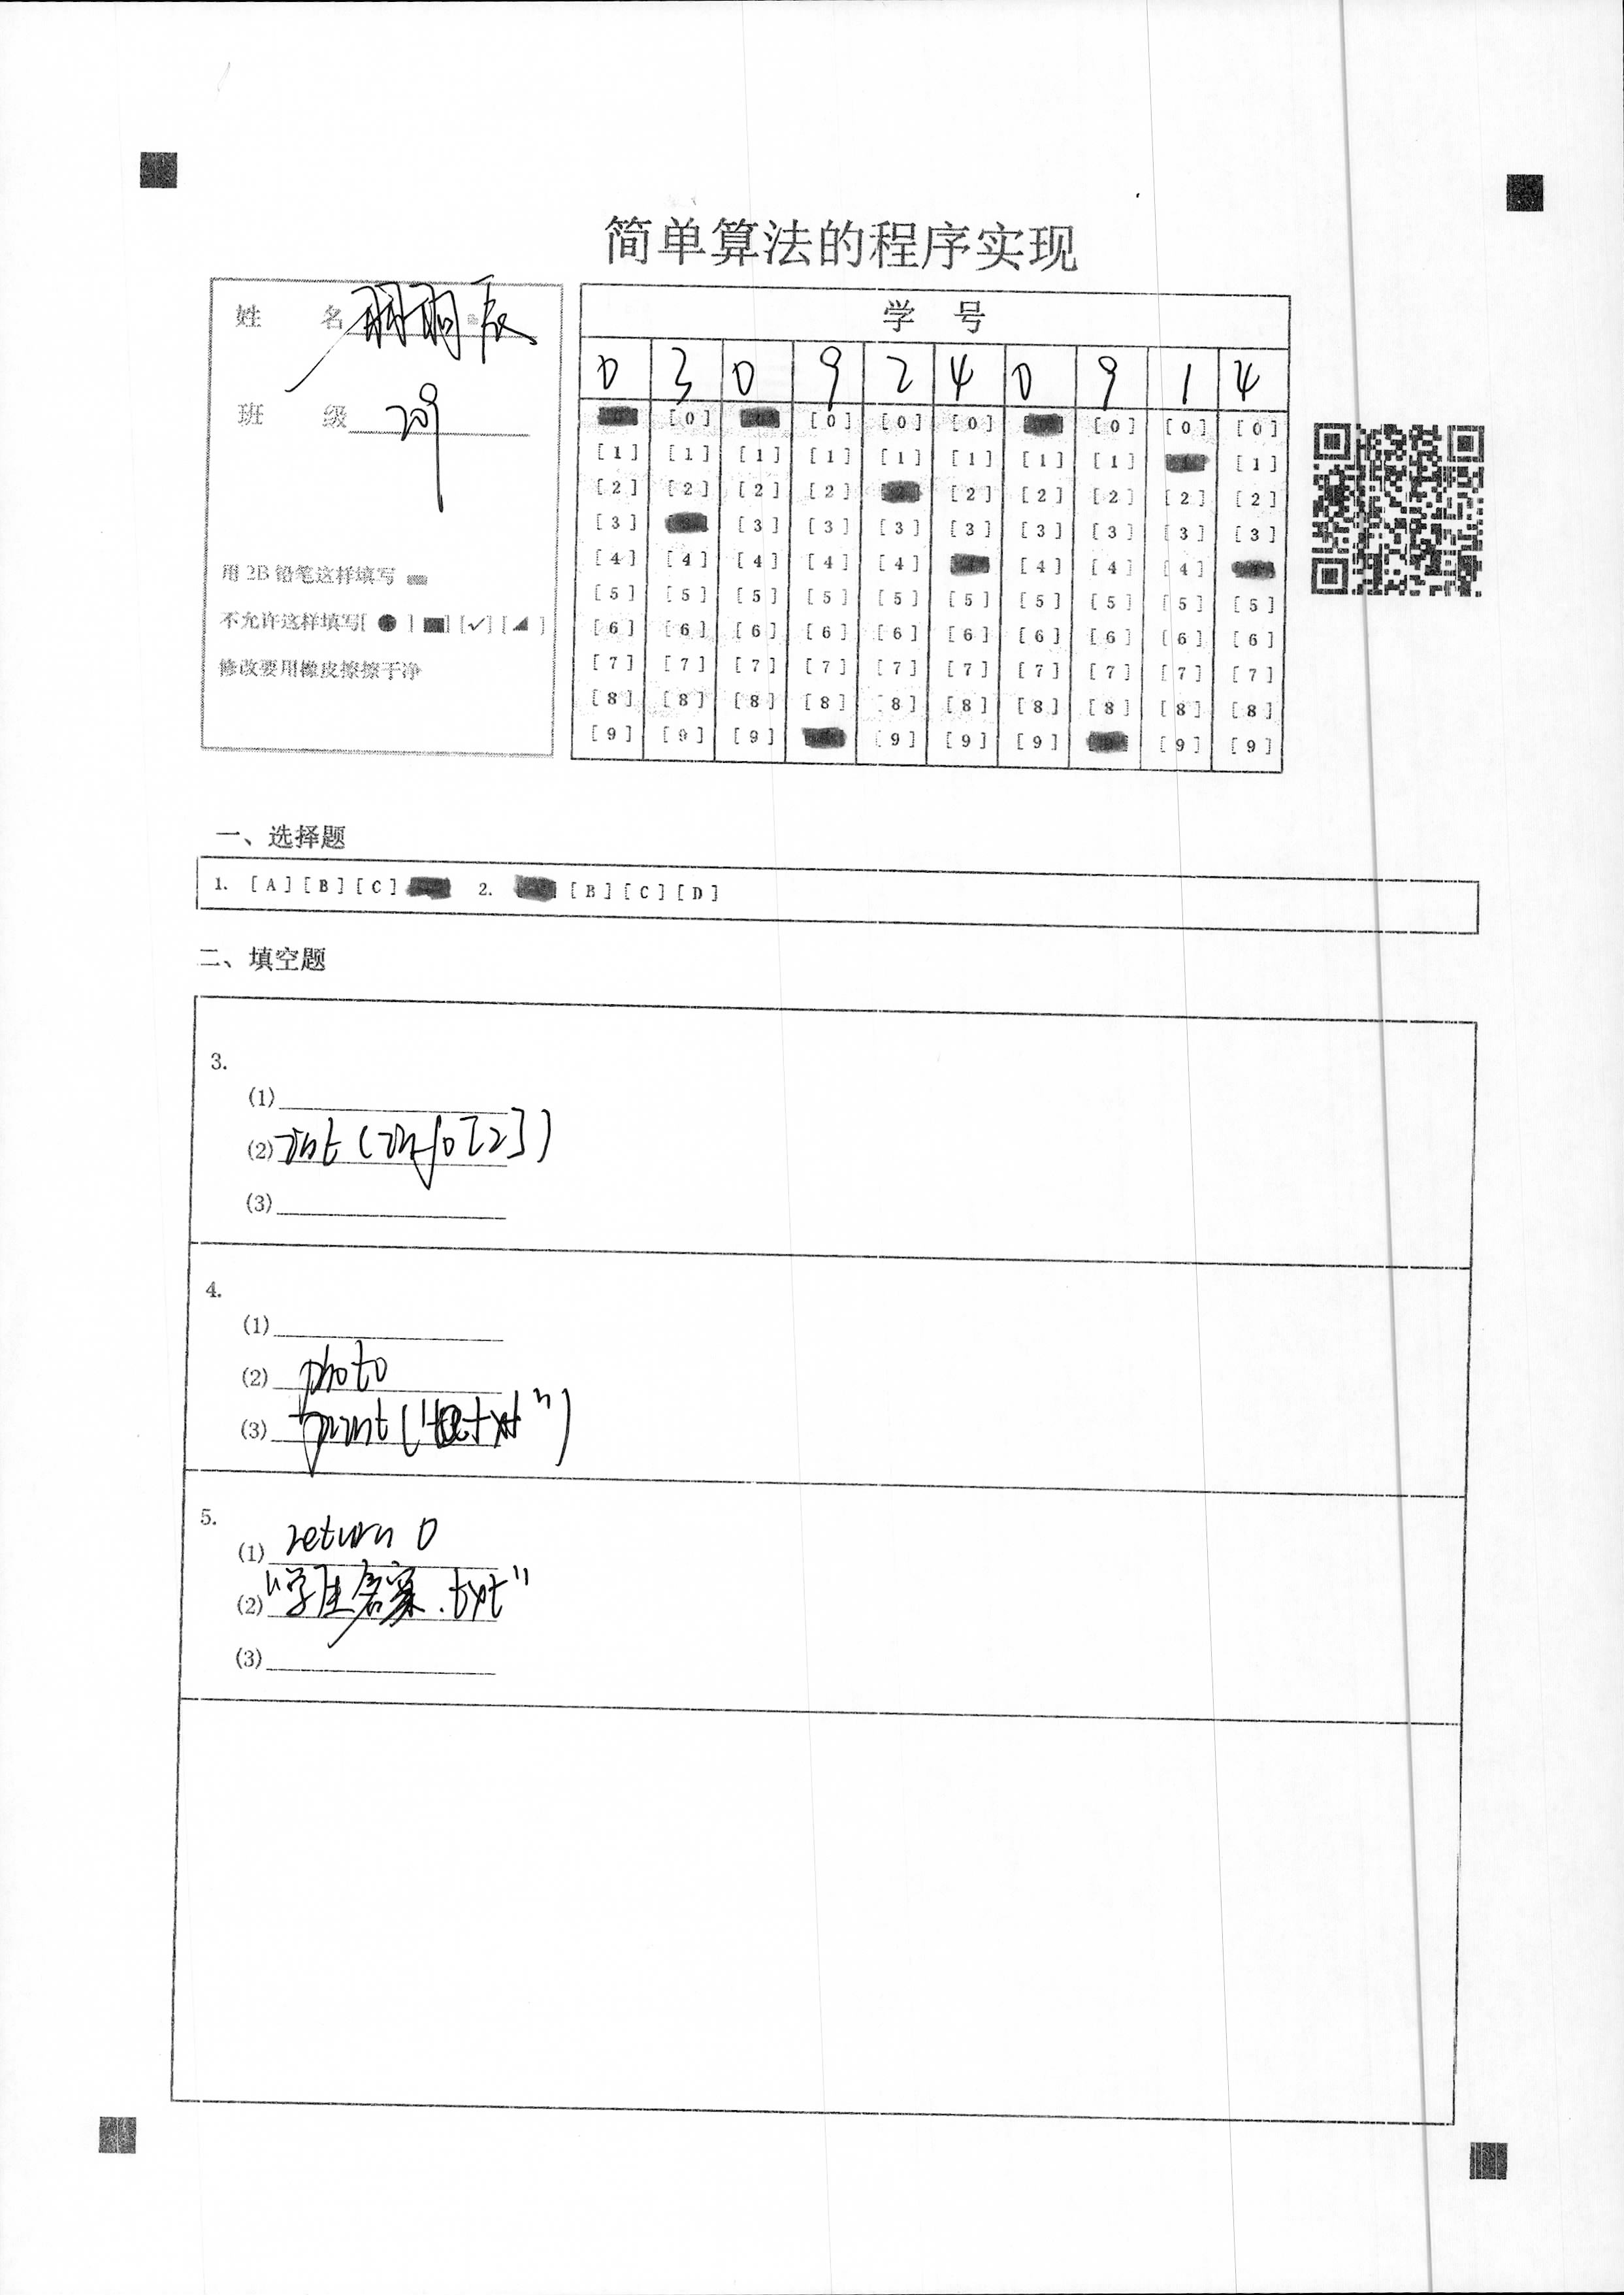 简单算法的程序实现
姓 名
班 级 209
用 2B 铅笔这样填写
不允许这样填写[ ] [ ] [✓] [ ]
修改要用橡皮擦擦干净
学 号
0 3 0 9 2 4 0 9 1 4
[0] [0] [0] [0] [0] [0] [0]
[1] [1] [1] [1] [1] [1] [1] [1] [1]
[2] [2] [2] [2] [2] [2] [2] [2] [2]
[3] [3] [3] [3] [3] [3] [3] [3] [3]
[4] [4] [4] [4] [4] [4] [4] [4]
[5] [5] [5] [5] [5] [5] [5] [5] [5] [5]
[6] [6] [6] [6] [6] [6] [6] [6] [6] [6]
[7] [7] [7] [7] [7] [7] [7] [7] [7] [7]
[8] [8] [8] [8] [8] [8] [8] [8] [8] [8]
[9] [9] [9] [9] [9] [9] [9] [9]
一、选择题
1. [A] [B] [C] 2. [B] [C] [D]
二、填空题
3.
(1)
(2) int(info[2])
(3)
4.
(1)
(2) photo
(3)
5.
(1) return 0
(2) "学生名案.txt"
(3)